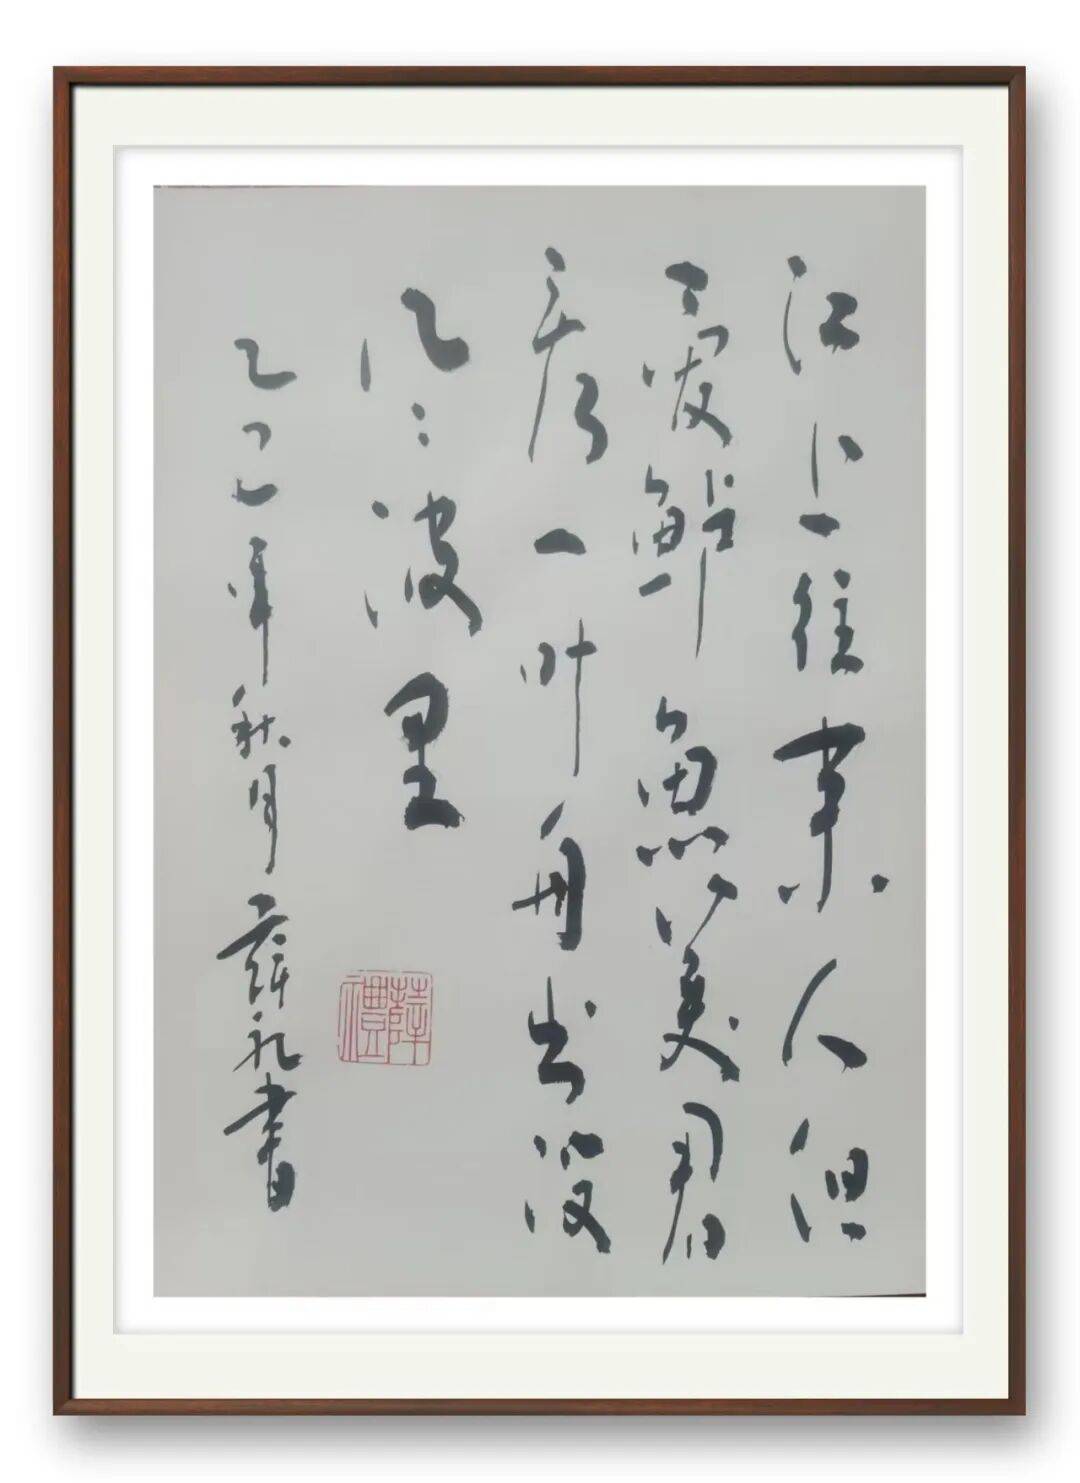 江上往来人但
爱鲈魚美君
看一叶舟出没
风波里
乙巳年秋月薛礼书
薛禮